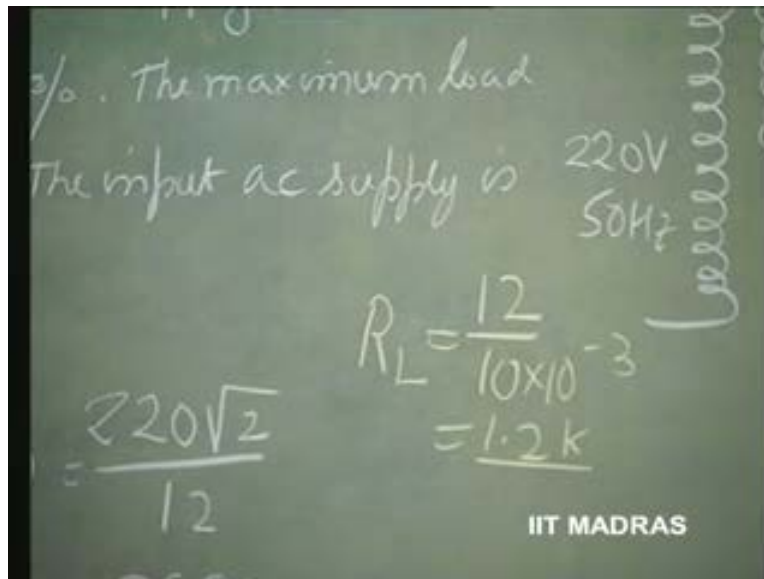 %. The maximum load
The input ac supply is
220V
50Hz
R_L = 12 / 10×10^-3
= 1.2 k
= 220√2 / 12
IIT MADRAS